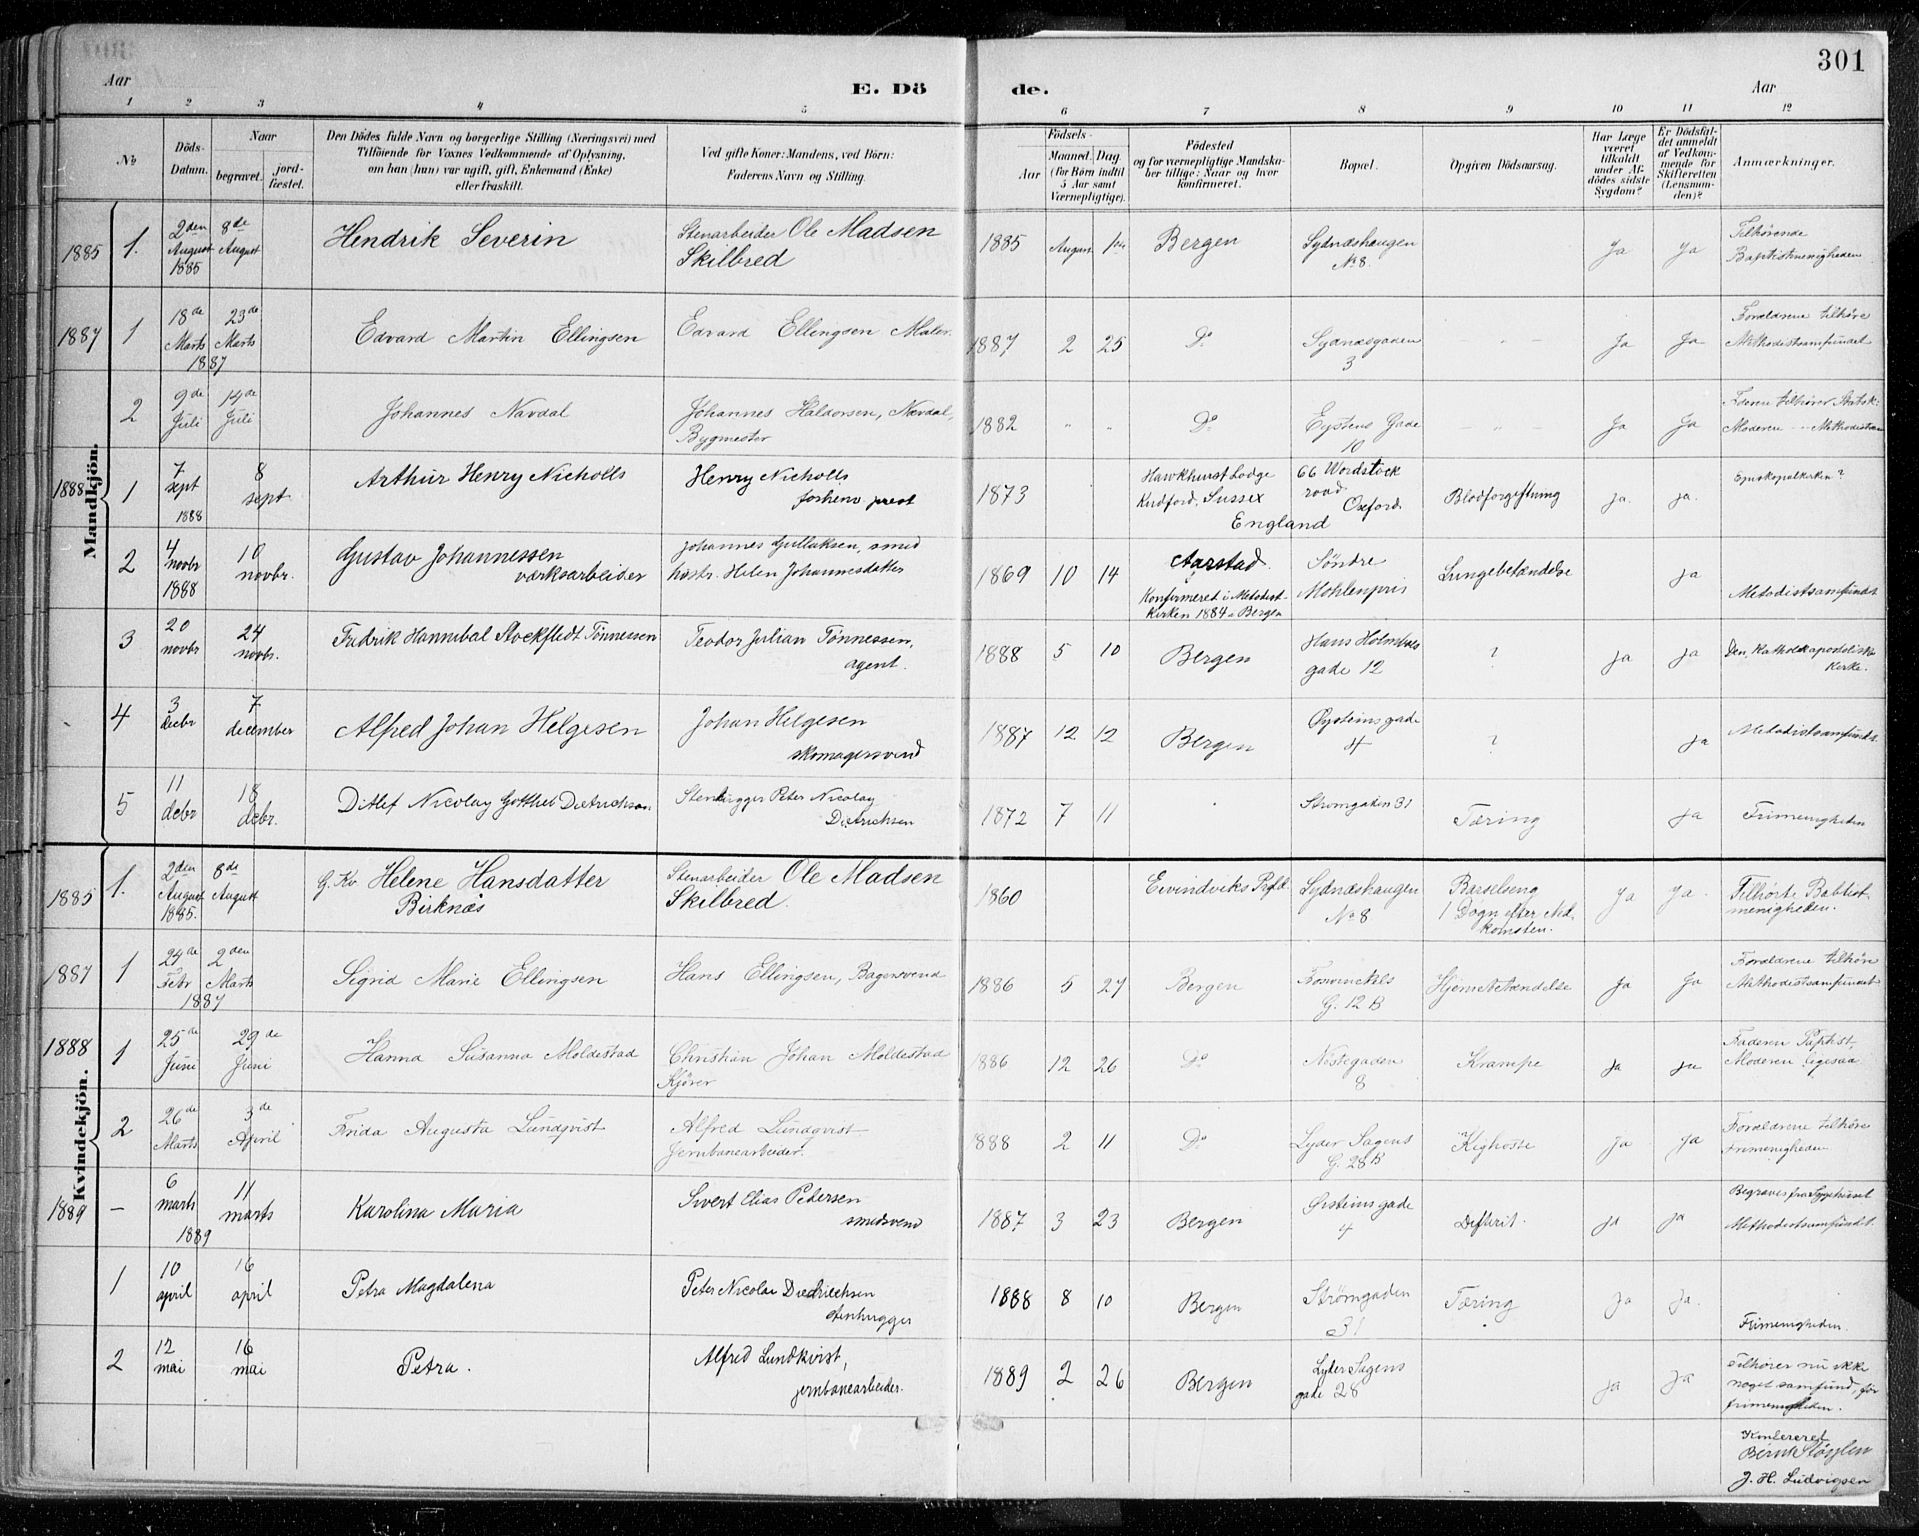 301
Aar
E. Dö
de.
Aar
1 2 3 4 5 6 7 8 9 10 11 12
№
Döds-Datum.
Naar
begravet.
jord-fæstet.
Den Dödes fulde Navn og borgerlige Stilling (Næringsvei) med
Tilföiende for Voxnes Vedkommende af Oplysning,
om han (hun) var ugift, gift, Enkemand (Enke)
eller fraskilt.
Ved gifte Koner: Mandens, ved Börn:
Faderens Navn og Stilling.
Födsels-
Aar
Maaned. Dag.
(for Börn indtil
5 Aar samt
Værnepligtige).
Födested
og for værnepligtige Mandska-
ber tillige: Naar og hvor
konfirmeret.
Bopæl.
Opgiven Dödsaarsag.
Har Læge
været
tilkaldt
under Af-
dödes sidste
Sygdom?
Er Dödsfal-
det anmeldt
af Vedkom-
mende for
Skifteretten
(Lensman-
den)?
Anmærkninger.
Mandkjön.
1885 1. 2den August 1885 8de August Hendrik Severin Stenarbeider Ole Madsen Skilbred 1885 August 1ste Bergen Sydnæshaugen No 8. Ja Ja Tilhørende Baptistmenigheden
1887 1 18de Marts 1887 23de Marts Edvard Martin Ellingsen Edvard Ellingsen Maler 1887 2 25 Do Sydnæsgaden 3 – " – Ja Ja Forældrene tilhøre Methodistsamfundet
2 9de Juli 14de Juli Johannes Navdal Johannes Haldorsen, Navdal, Bygmester 1882 " " Do Eystens Gade 10 – " – Ja Ja Faderen tilhører Statsk. Moderen – " – Methodistsam
1888 1 7 sept 1888 8 sept Arthur Henry Nicholls Henry Nicholls forhenv. prest 1873 Hawkhurst Lodge Kirdford, Sussex England 66 Woodstock road Oxford Blodforgiftning ja ja. Episkopalkirken?
2 4 novbr 1888 10 novbr. Gustav Johannessen værksarbeider Johannes Gullaksen, smed hustr. Helen Johannesdatter 1869 10 14 Aarstad. Konfirmeret i Metodist-kirken 1884 i Bergen Søndre Møhlenpris Lungebetændelse ja Metodistsamfundet
3 20 novbr 24 novbr. Fredrik Hannibal Stockfledt Tønnessen Teodor Julian Tønnessen, agent. 1888 5 10 Bergen Hans Holmboes gade 12 ? ja ja Den Katholskapostoliske Kirke.
4 3 decbr 7 december Alfred Johan Helgesen Johan Helgesen skomagersvend 1887 12 12 Bergen Øysteins gade 4 ? ja Metodistsamfundet
5 11 decbr 18 decbr. Ditlef Nicolay Gotthilf Dietrichson Stenhugger Peter Nicolay Dietrichsen 1872 7 11 Strømgaden 31 Tæring ja Frimenigheden
Kvindekjön.
1885 1. 2den August 1885. 8de August G. Kv Helene Hansdatter Birknæs Stenarbeider Ole Madsen Skilbred. 1860 Eivindviks Prgld Sydnæshaugen No 8 Barselseng 1 Døgn efter Ned-komsten. Ja Ja. Tilhørte Babtist-menigheden.
1887 1 24de Febr 1887 2den Marts Sigrid Marie Ellingsen Hans Ellingsen, Bagersvend 1886 5 27 Bergen Fosswinckels G. 12 B Hjernebetændelse Ja Ja Forældrene tilhøre Methodistsamfundet
1888 1 25de Juni 29de Juni Hanna Susanna Moldestad Christian Johan Moldestad Kjører 1886 12 26 Do Nøstegaden 8 Krampe Ja Ja Faderen Paptist, Moderen ligesaa
2 26de Marts 3de April Frida Augusta Lundqvist Alfred Lundqvist Jernbanearbeider. 1888 2 11 Do Lyder Sagens G. 28 B Kighoste Ja Ja Forældrene tilhøre Frimenigheden
1889 – 6 marts 1889 11 marts Karolina Maria Sivert Elias Petersen smedsvend 1887 3 23 Bergen Øisteins gade 4 Difterit. ja ja Begraves fra Sygehuset Methodistsamfundet.
1 10 april 16 april Petra Magdalena Peter Nicolai Diedrichsen stenhugger 1888 8 10 Bergen Strømgaden 31 Tæring Ja Ja. Frimenigheden.
2 12 mai 16 mai Petra. Alfred Lundkvist, jernbanearbeider. 1889 2 26 Bergen Lyder Sagens gade 28 ja ja Tilhører nu ikke noget samfund, før frimenigheden.
J. H. Ludvigsen